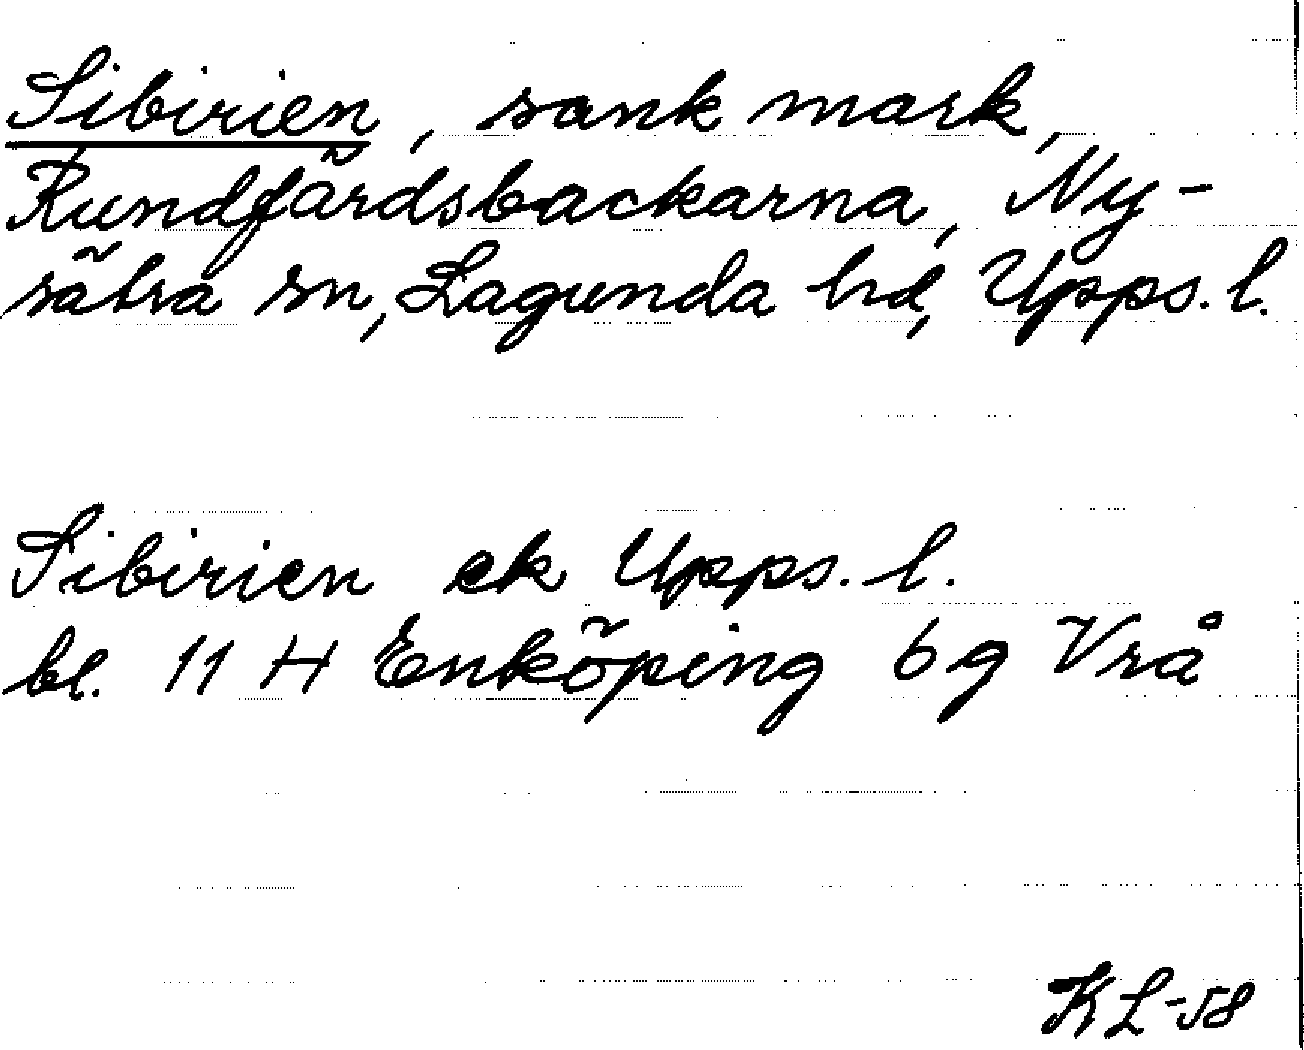 Sibirien, sank mark,
Rundfärdsbackarna, Ny-
sätra sn, Lagunda hd, Upps. l.
Sibirien ek Upps. l.
bl. 11 H Enköping 6 g Vrå
KL-58